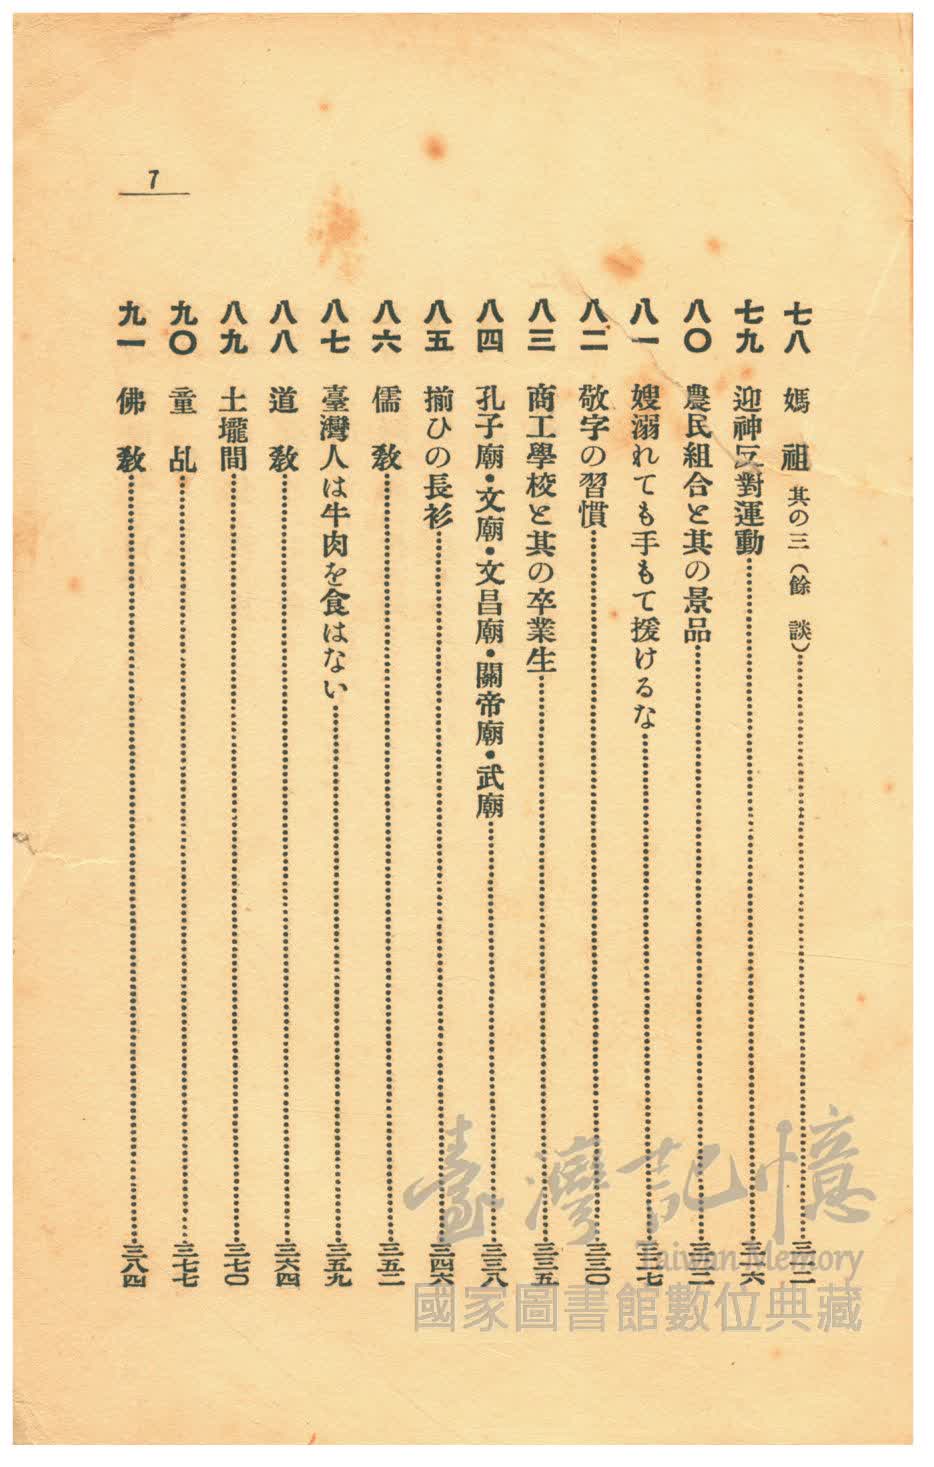 7
七八 媽祖 其の三（餘談）……三一二
七九 迎神反對運動……三一六
八〇 農民組合と其の景品……三二二
八一 嫂溺れても手もて援けるな……三二七
八二 敬字の習慣……三三〇
八三 商工學校と其の卒業生……三三五
八四 孔子廟・文廟・文昌廟・關帝廟・武廟……三三八
八五 揃ひの長衫……三四六
八六 儒教……三五二
八七 臺灣人は牛肉を食はない……三五九
八八 道教……三六四
八九 土壠間……三七〇
九〇 童乩……三七七
九一 佛教……三八四
臺灣記憶
Taiwan Memory
國家圖書館數位典藏